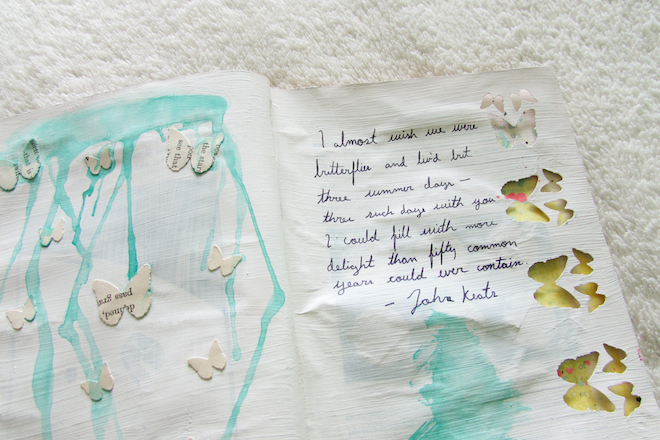 this is
see that
the star
drained,
pass gra
I almost wish we were
butterflies and liv'd but
three summer days —
three such days with you
I could fill with more
delight than fifty common
years could ever contain.
- John Keats